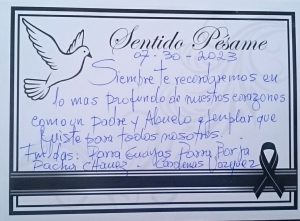 Sentido Pésame
07-30-2023
Siempre te recordaremos en
lo mas profundo de nuestros corazones
como un padre y Abuelo ejemplar que
fuiste para todos nosotros.
Parra Guayas Parra Borja
Chavez - Cardenas Vazquez